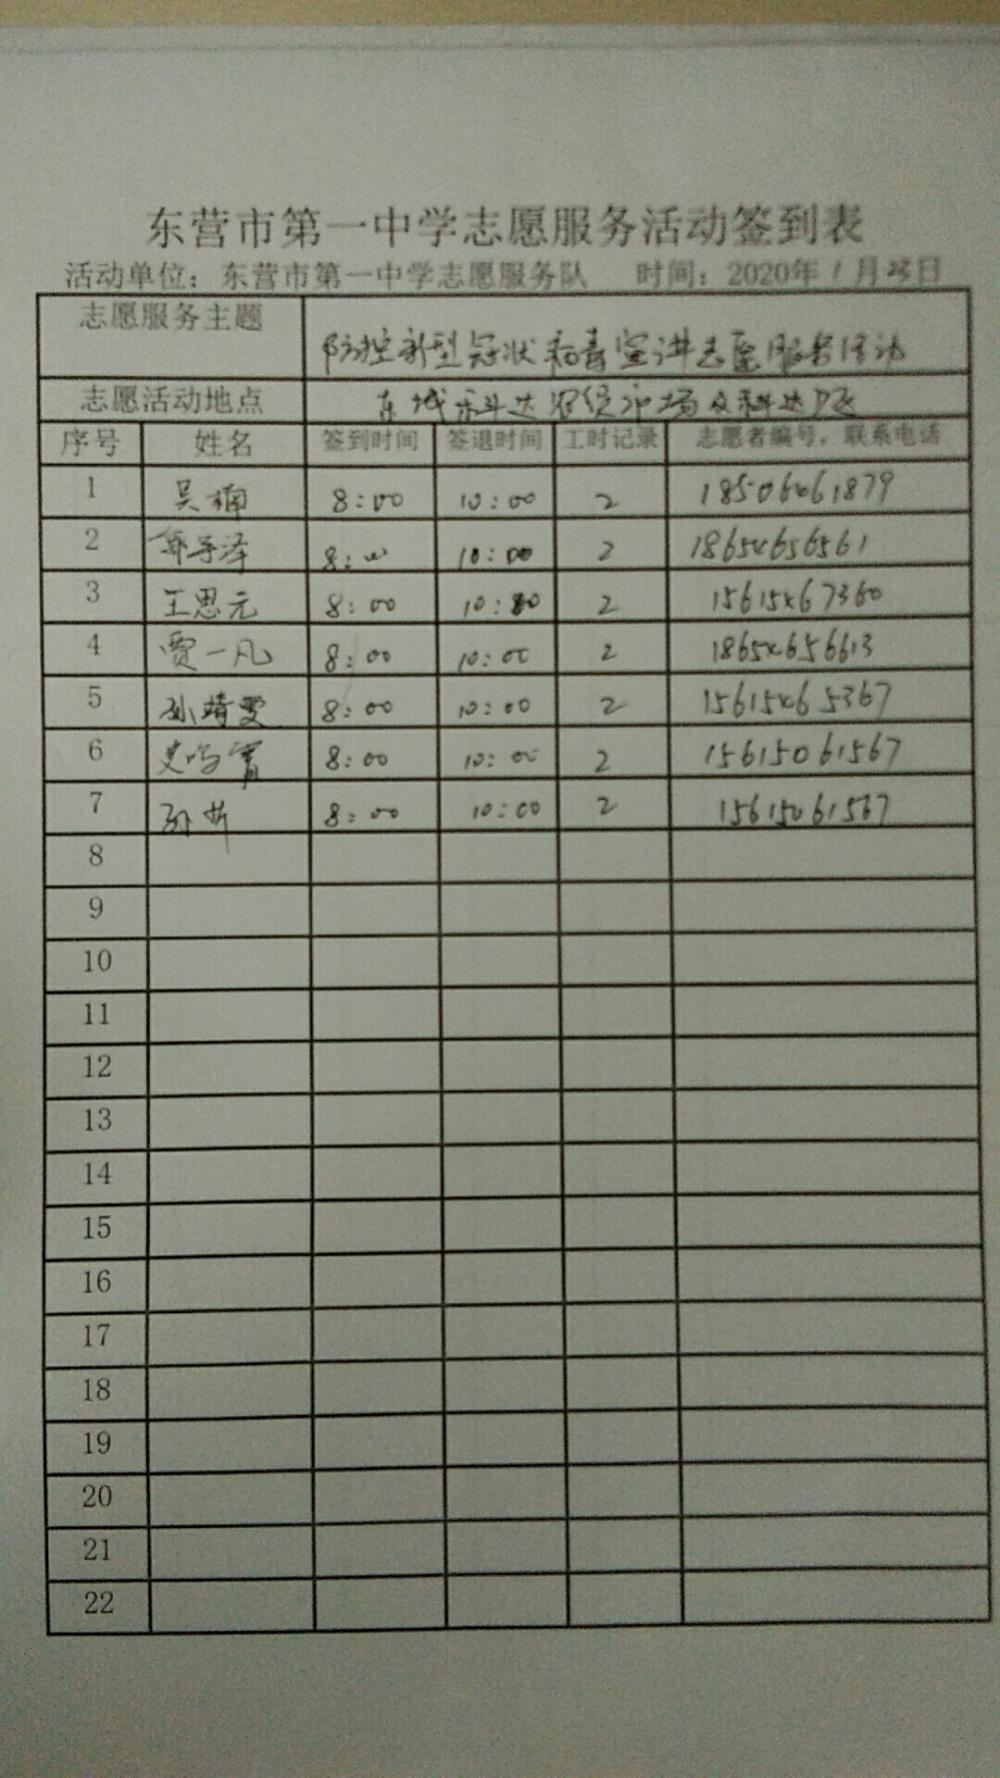 东营市第一中学志愿服务活动签到表
活动单位：东营市第一中学志愿服务队 时间：2020年1月28日
志愿服务主题 防控新型冠状病毒宣讲志愿服务活动
志愿活动地点 东城科达 市场及科达小区
序号 姓名 签到时间 签退时间 工时记录 志愿者编号，联系电话
1 吴楠 8:00 10:00 2 18506461879
2 8:00 10:00 2 18654656561
3 王思元 8:00 10:00 2 15615467360
4 贾一凡 8:00 10:00 2 18654656613
5 孙靖雯 8:00 10:00 2 15615465367
6 8:00 10:00 2 15615061567
7 8:00 10:00 2 15615061567
8
9
10
11
12
13
14
15
16
17
18
19
20
21
22